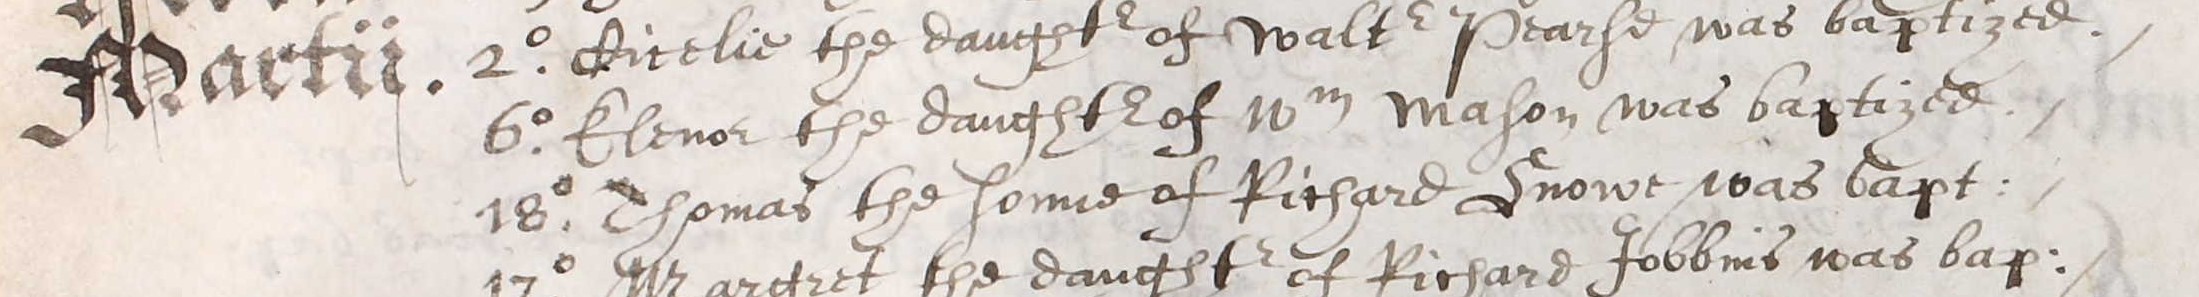 Martii. 2°. Cicelie the daughtr of Waltr Pearse was baptized.
6°. Elenor the daughtr of Wm Mason was baptized.
18°. Thomas the sonne of Richard Snowe was bapt:
17° Margret the daughtr of Richard Jobbins was bap: